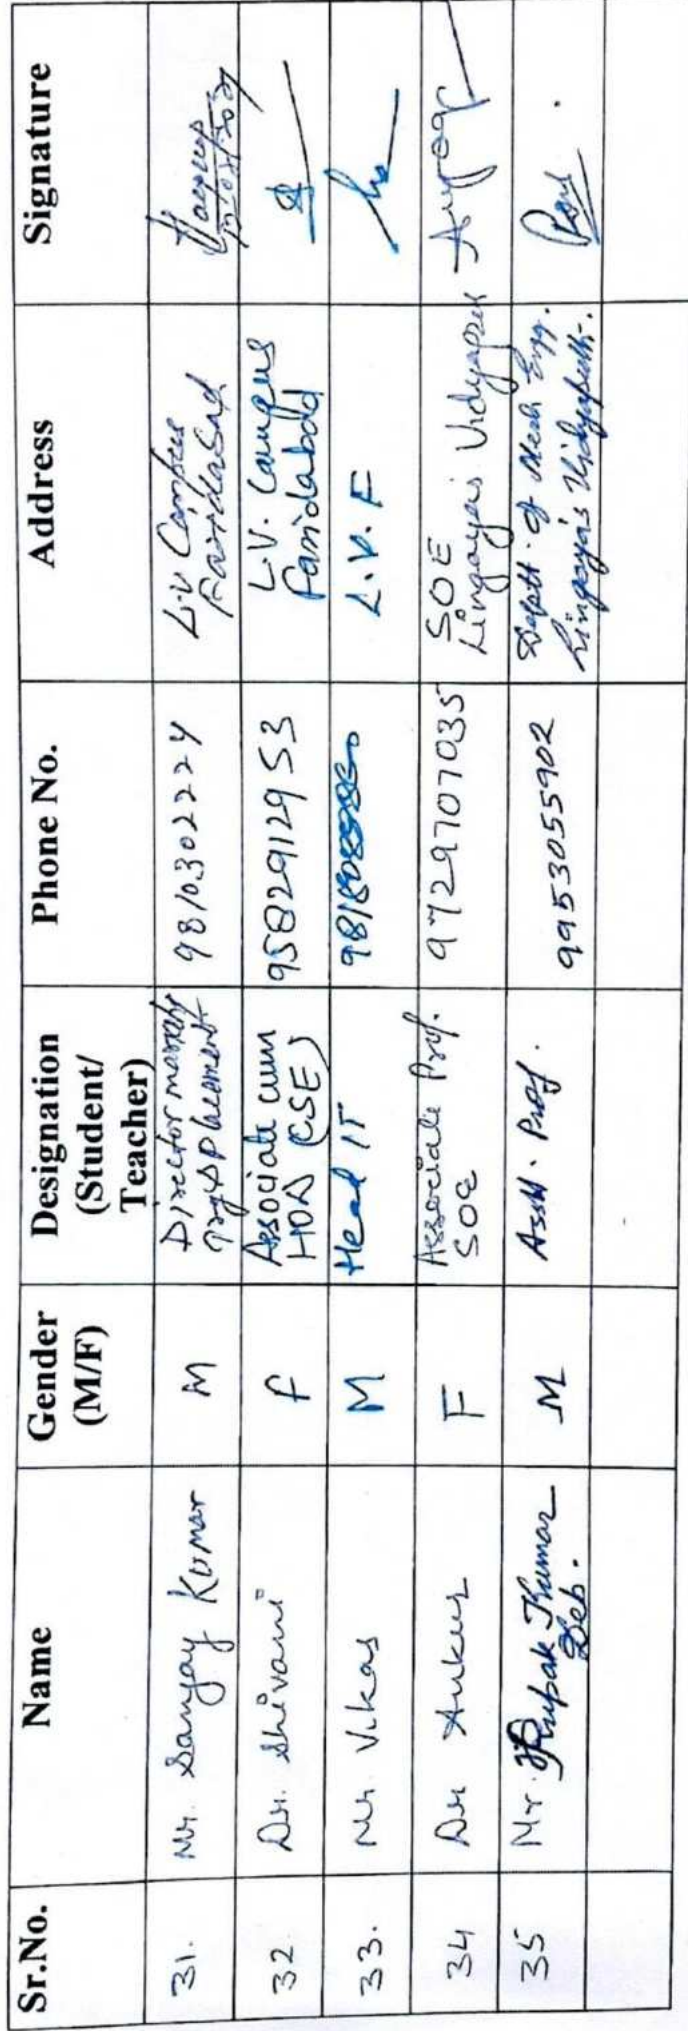 Sr.No. Name Gender (M/F) Designation (Student/ Teacher) Phone No. Address Signature
31. Mr. Sanjay Kumar M Director & Placement 9810302224 L.V Campus Faridabad
32 Dr. Shivani f Associate cum HOD (CSE) 9582912953 L.V. Campus Faridabad
33. Mr. Vikas M Head IT L.V.F
34 Dr F Associate Prof. SOE 9729707035 SOE Lingaya's Vidyapeeth
35 Mr. Rupak Kumar Deb. M Asstt. Prof. 9953055902 Deptt. of Mech Engg. Lingaya's Vidyapeeth.